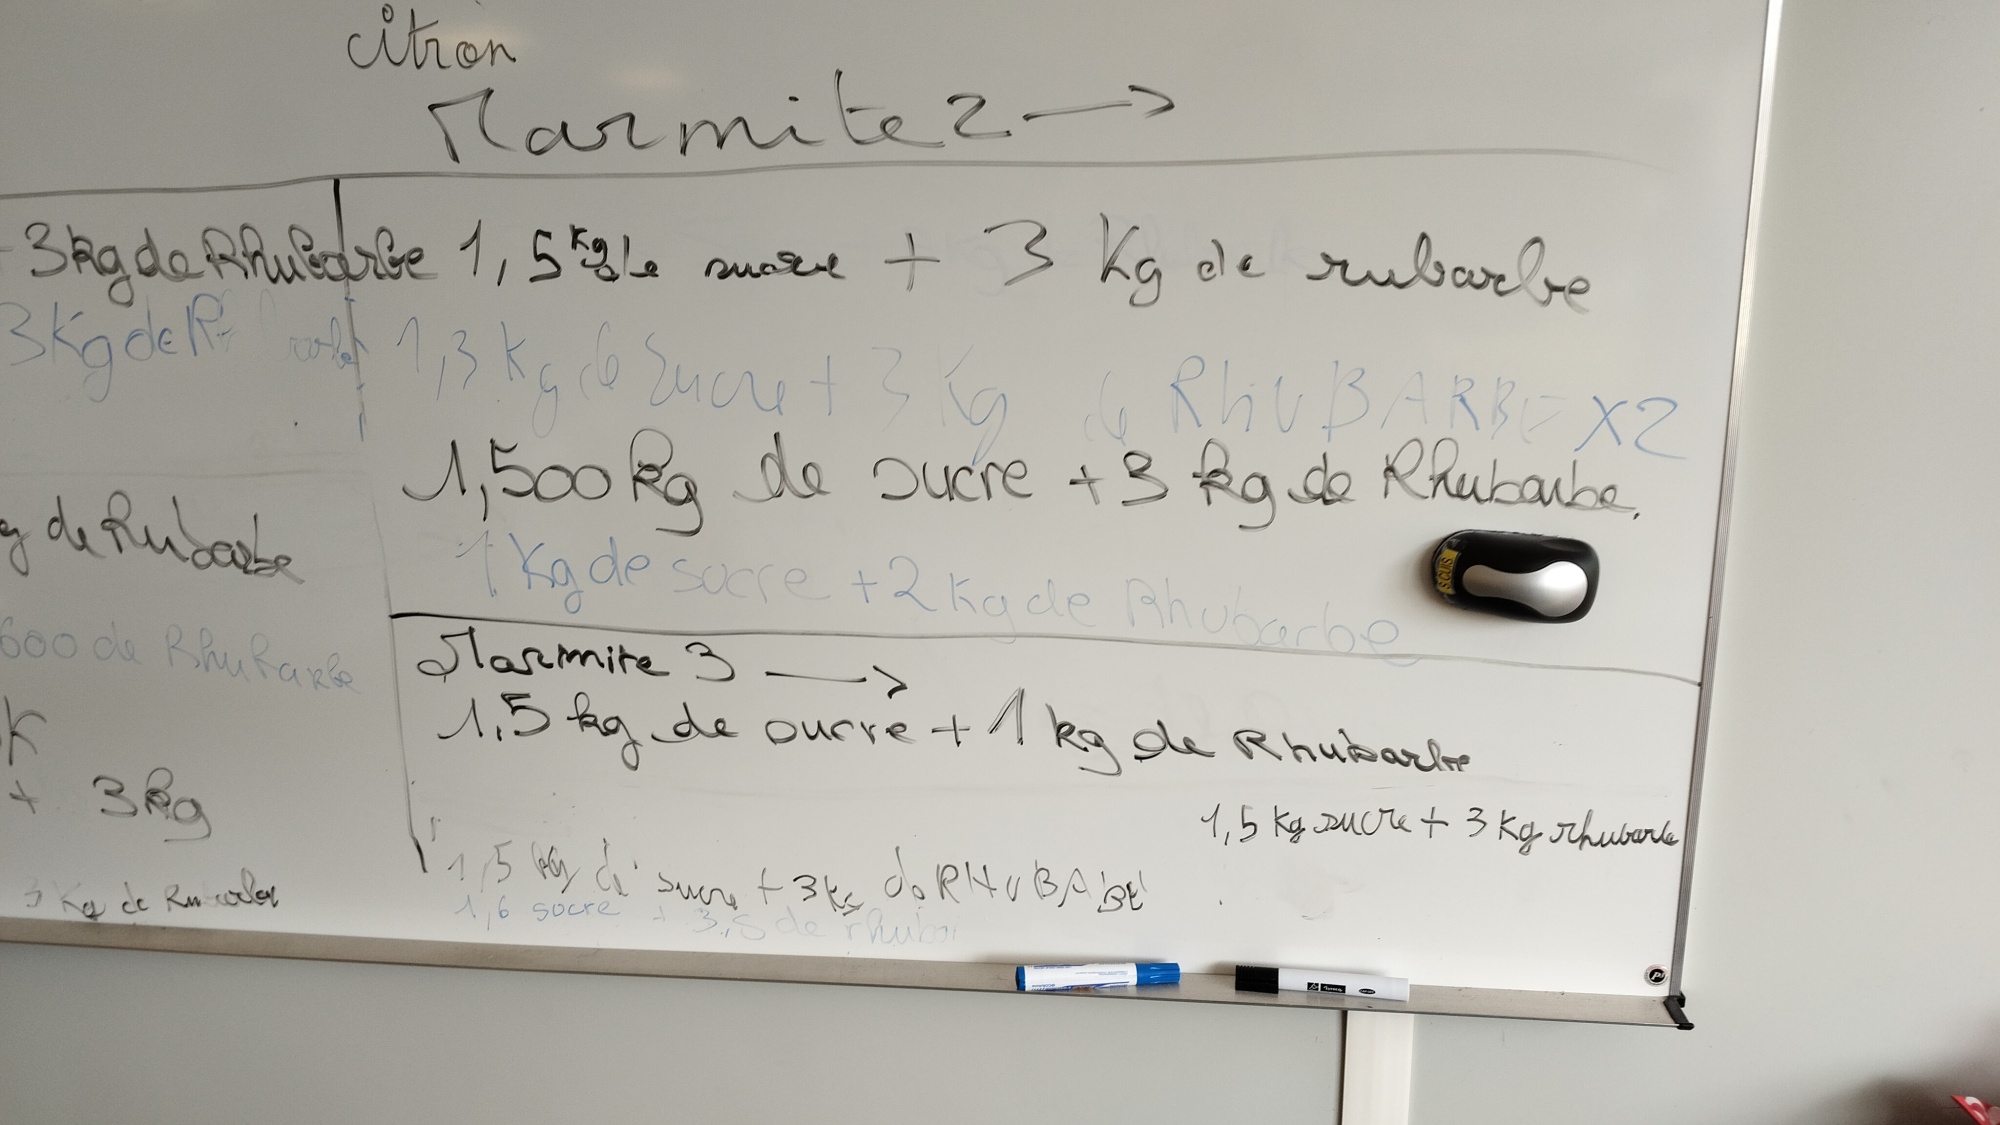 citron
Marmite 2 →
3kg de Rhubarbe
3Kg de R
g de Rubarbe
600 de Rhubarbe
K
+ 3kg
3 Kg de
1,5 kg de sucre + 3 Kg de rubarbe
1,3 Kg de sucre + 3 Kg de RHUBARBE X2
1,500 kg de sucre + 3 kg de Rhubarbe.
1 Kg de socre + 2 Kg de Rhubarbe
Marmite 3 →
1,5 kg de sucre + 1 kg de Rhubarbe
1,5 Kg sucre + 3 Kg rhubarbe
1,5 kg de sucre + 3 kg de RHUBABE
1,6 socre + 3,5 de rhubar